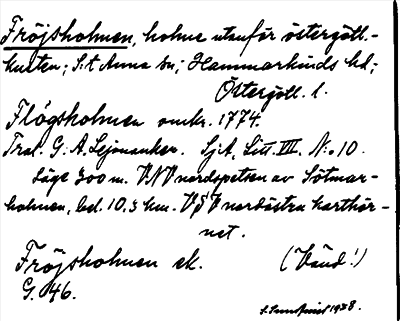 Fröjsholmen, holme utanför östergötl.-
kusten; S:t Anna sn; Hammarkinds hd;
Östergötl. l.
Flögsholmen omkr. 1774.
Trat. G. A. Lejonanker. Sjk, Litt. VII. N:o 10.
Läge 300 m. VNV nordspetsen av Lötmar-
holmen, bel. 10.3 km. V nordöstra karthör-
net.
Fröjsholmen ek.
G. 46.
(Vänd!)
1938.